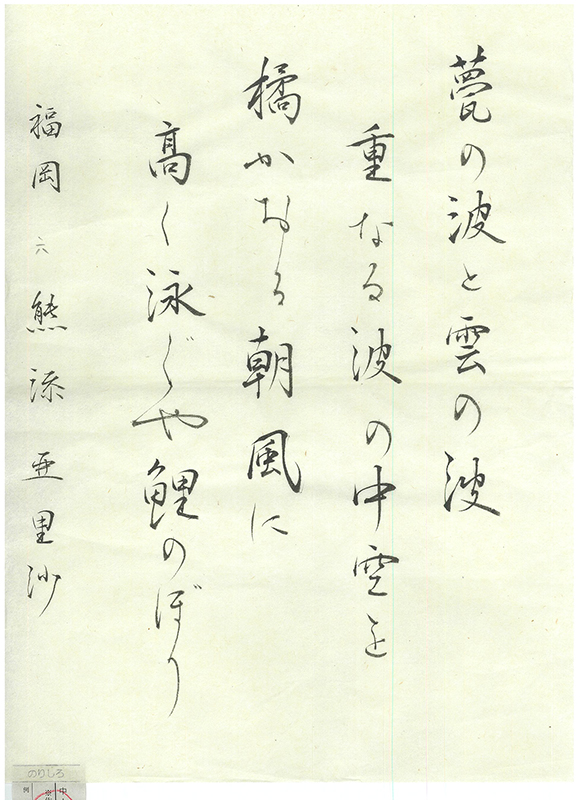 甍の波と雲の波
重なる波の中空を
橘かおる朝風に
高く泳ぐや鯉のぼり
福岡 六 熊添亜里沙
のりしろ